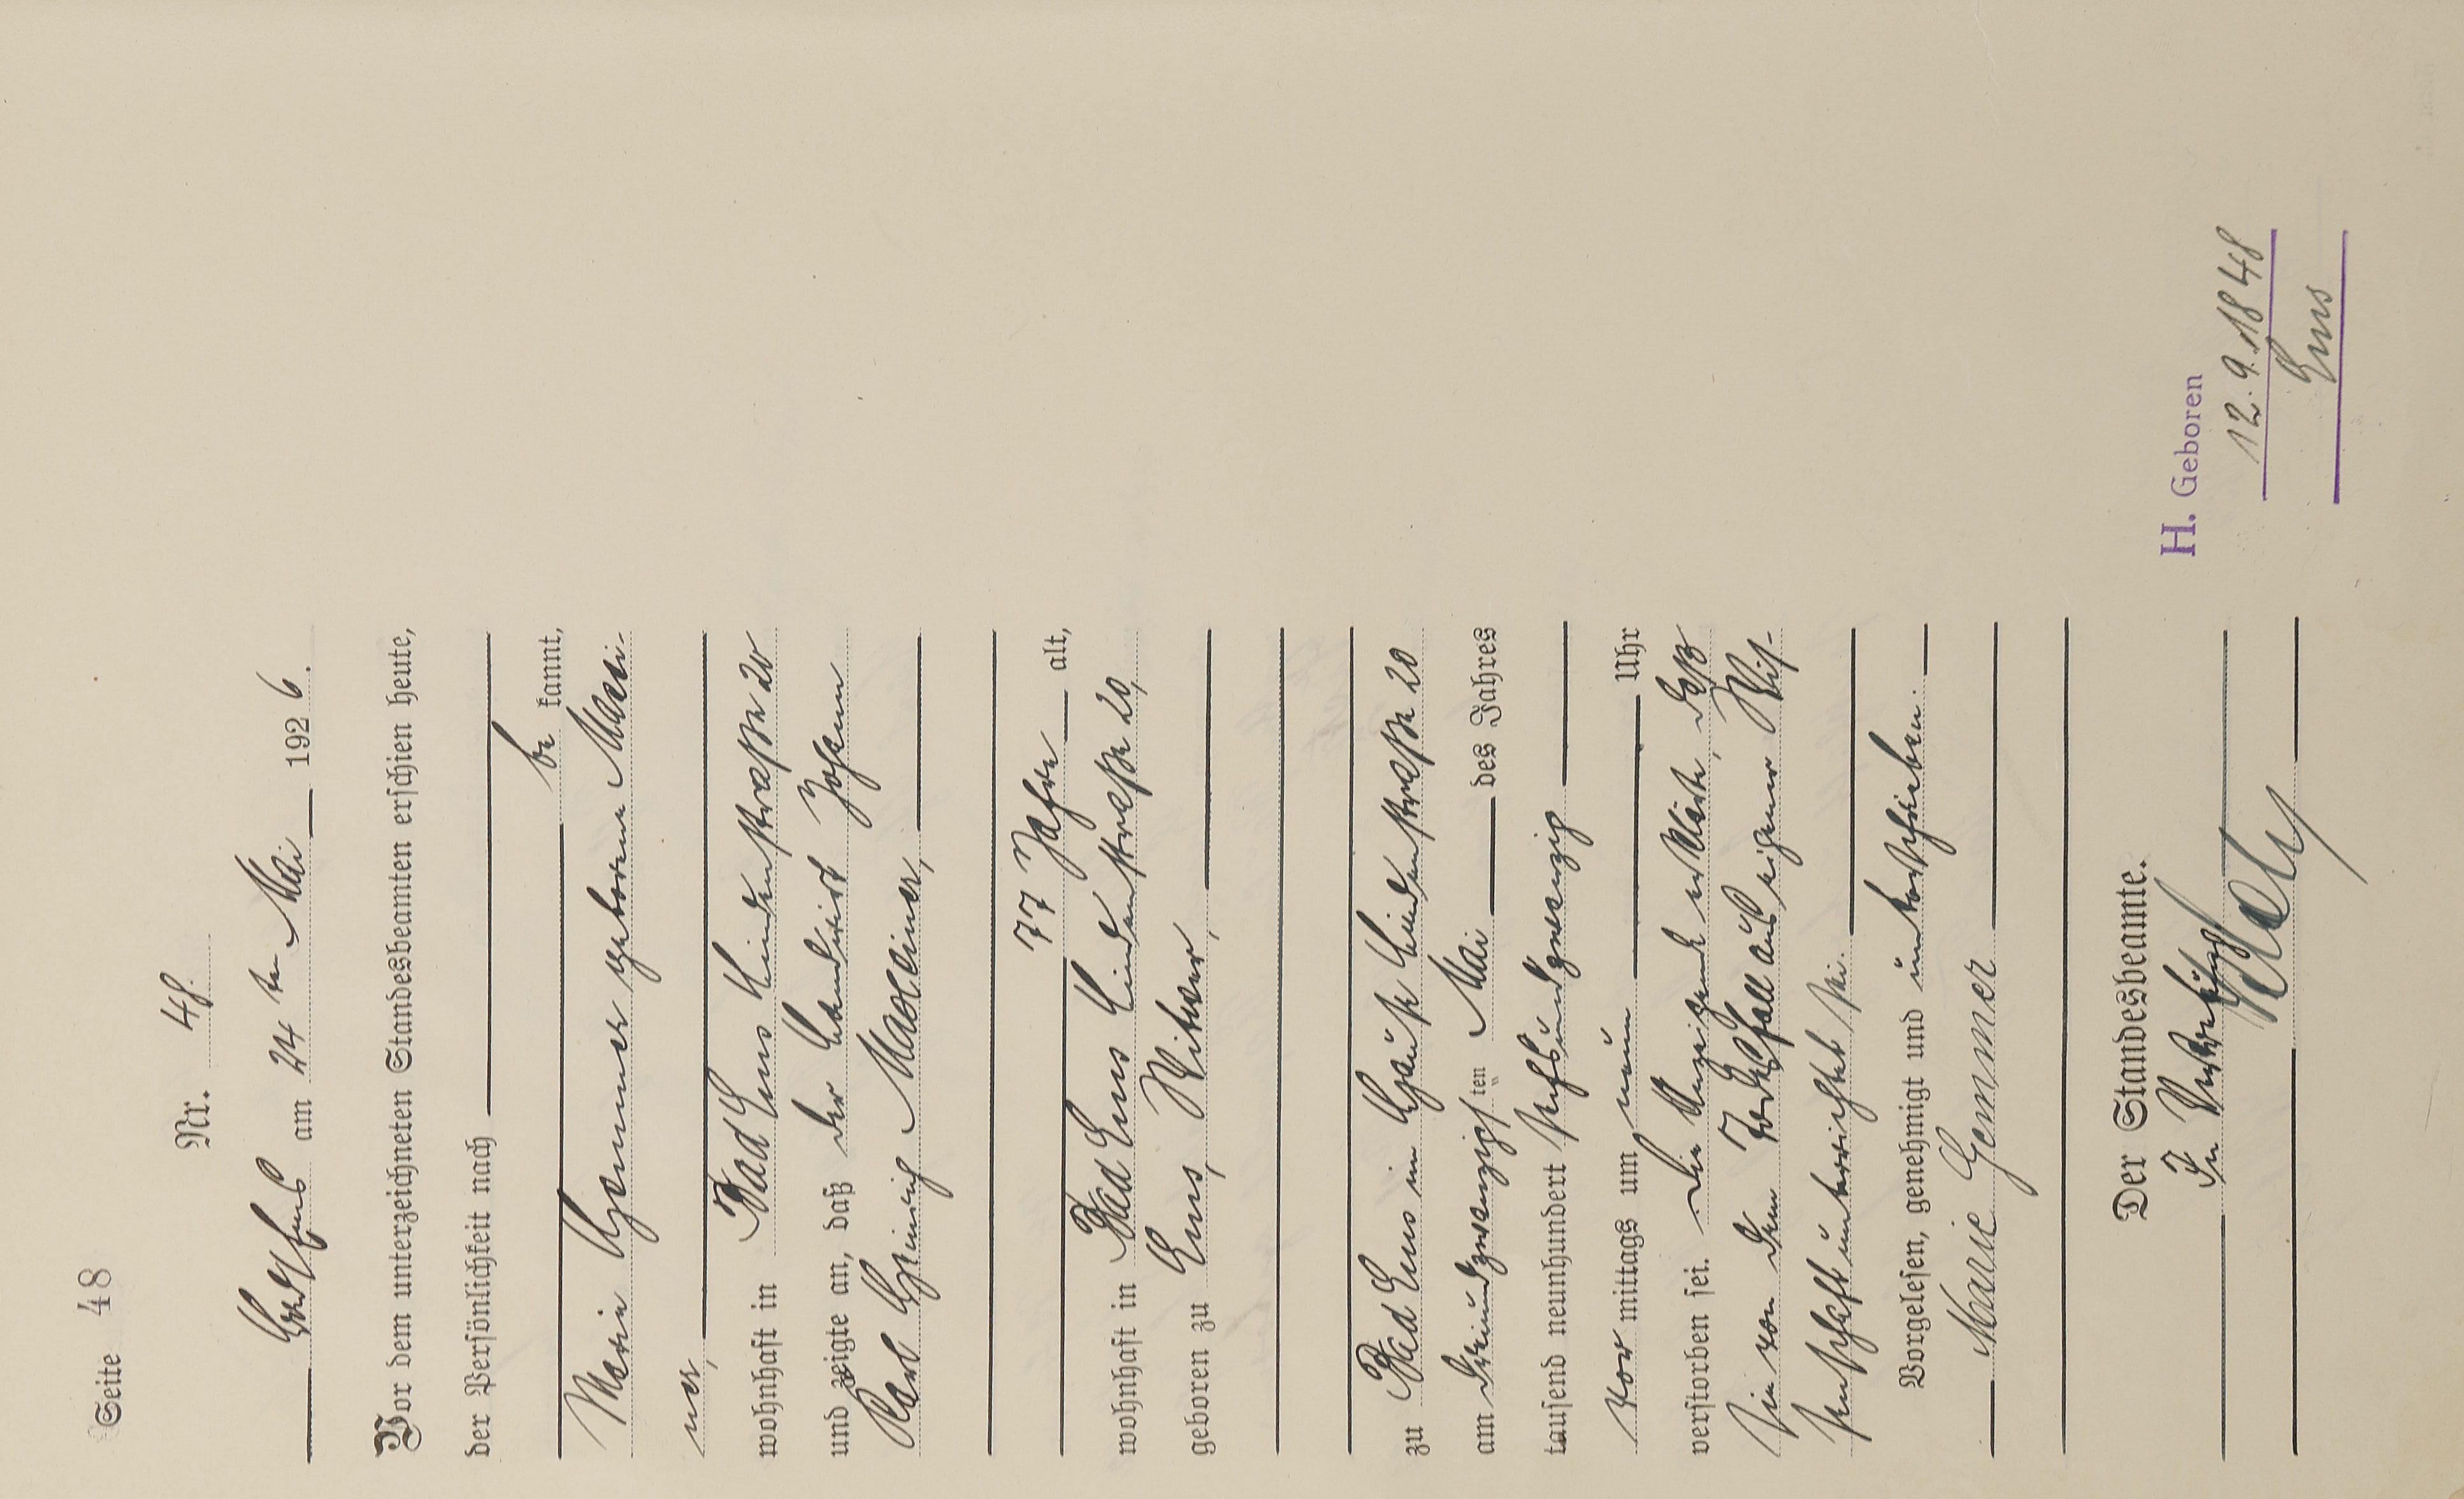 Seite 48
Nr. 48.
Bad Ems am 24 ten Mai 1926.
Vor dem unterzeichneten Standesbeamten erschien heute,
der Persönlichkeit nach
be kannt,
Marie Gemmer geborene Madi-
ner,
wohnhaft in Bad Ems Lindenstraße 20
und zeigte an, daß der Landwirt Johann
Karl Heinrich Madliner,
77 Jahre alt,
wohnhaft in Bad Ems Lindenstraße 20,
geboren zu Ems, Witwer,
zu Bad Ems im Hause Lindenstraße 20
am dreiundzwanzigsten Mai des Jahres
tausend neunhundert sechsundzwanzig
vor mittags um neun Uhr
verstorben sei. Die Anzeigende erklärte, daß
sie von dem Todesfall aus eigener Wis-
senschaft unterrichtet sei.
Vorgelesen, genehmigt und unterschrieben.
Marie Gemmer
Der Standesbeamte.
In Vertretung
H. Geboren
12.9.1848
Ems